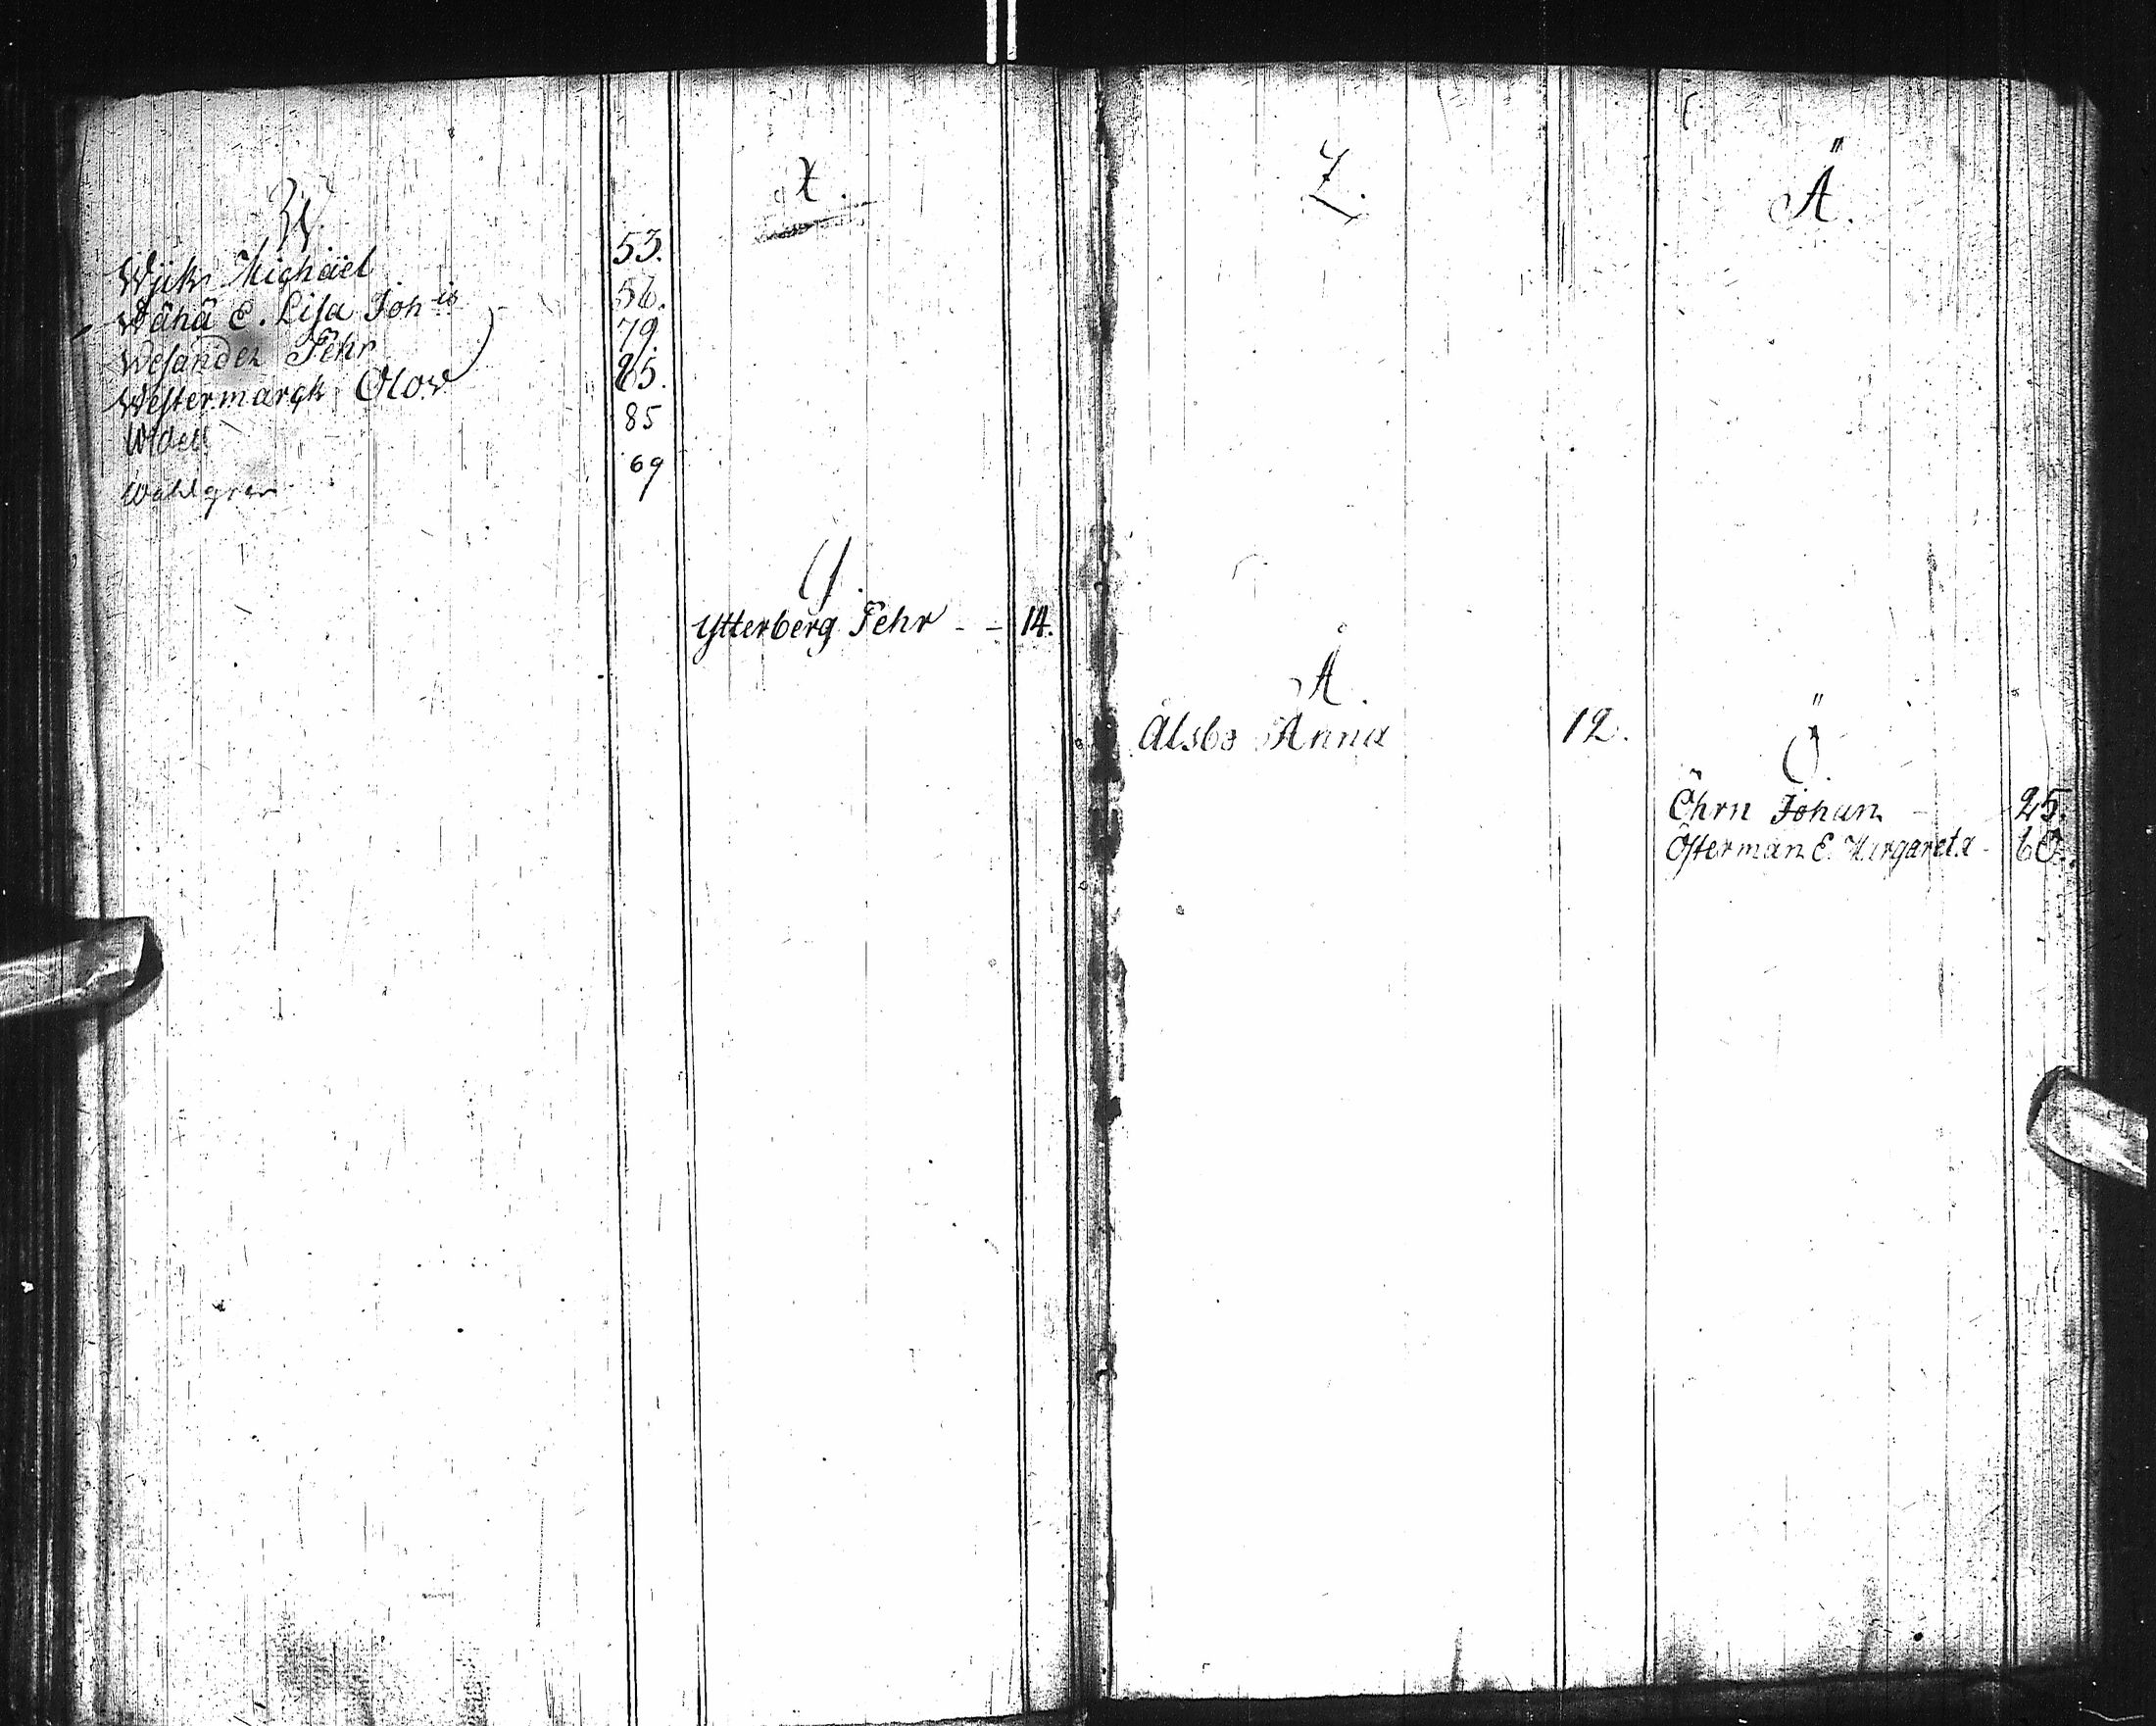 W.
Wijk Michaël 53.
Wähä E. Lisa Joh:is 56.
Wesander Pehr 79.
Westermarck Olow 85.
Widell 85
Wahlgren 69
X.
Y.
Ytterberg Pehr - - 14.
Z.
Å.
Ålsbo Anna 12.
Ä.
Ö.
Öhrn Johan - 25.
Österman E. Margareta - 60.